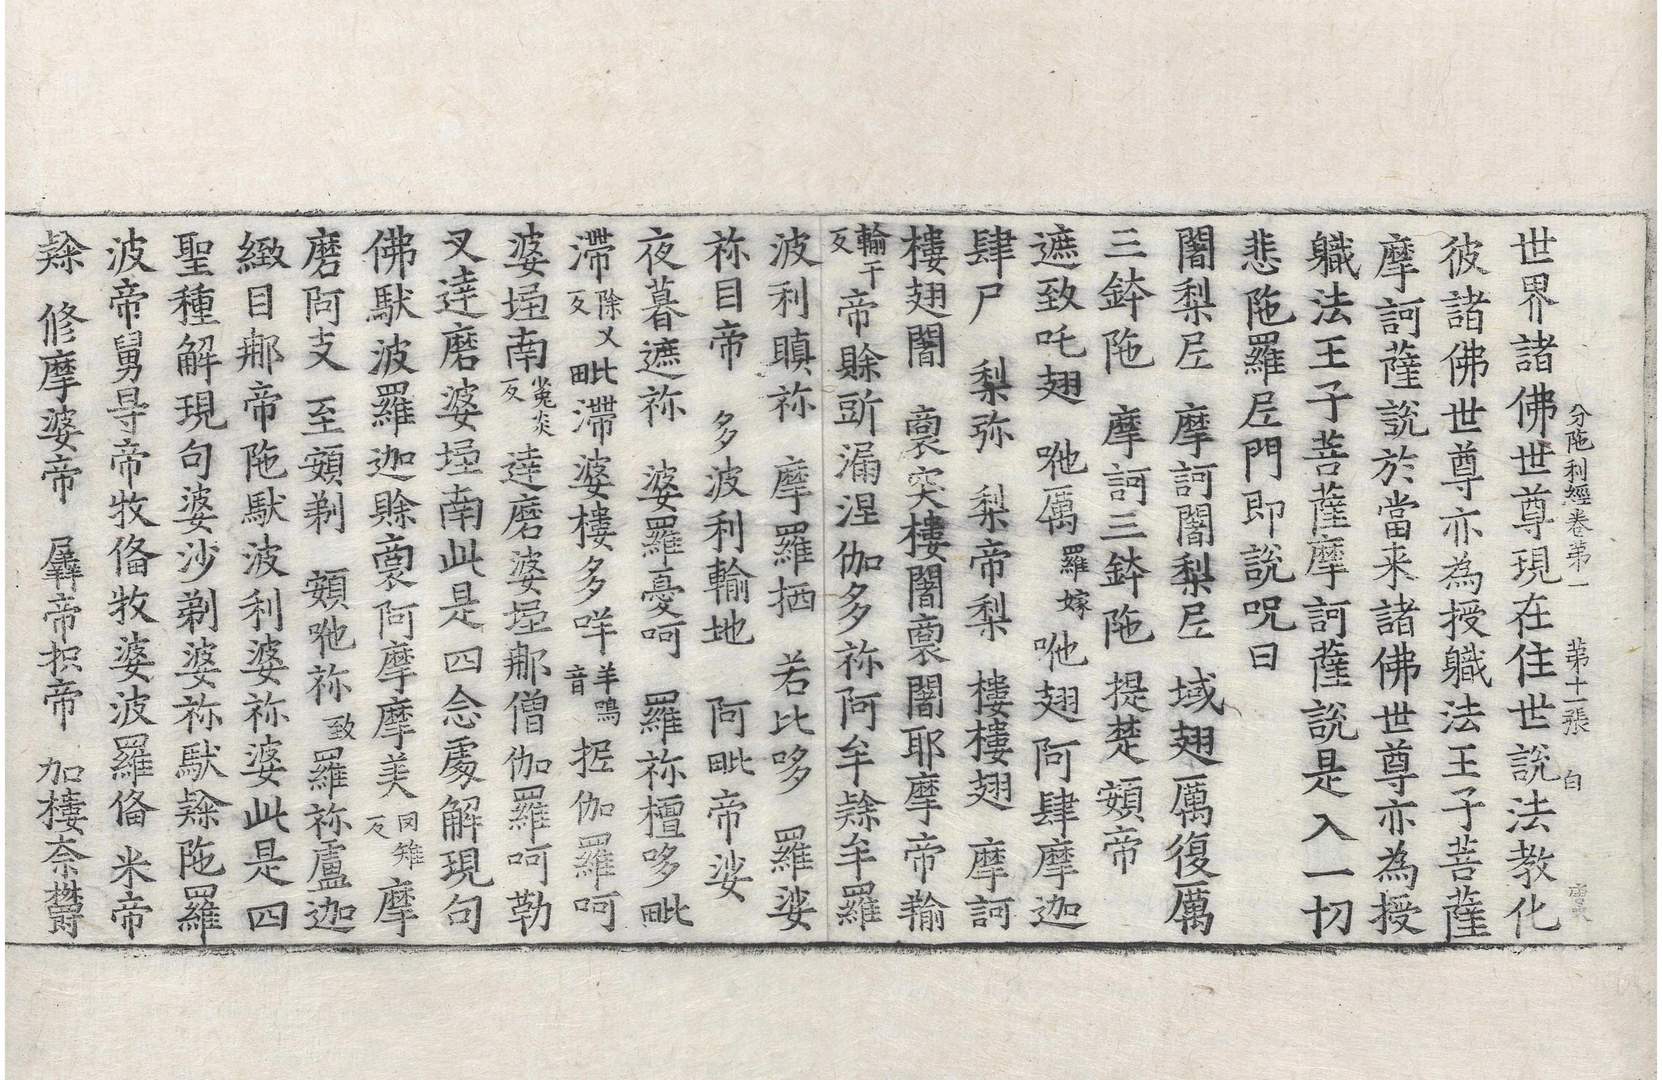 分陁利經卷苐一 苐十一張 白
世界諸佛世尊現在住世說法教化
彼諸佛世尊亦為授軄法王子菩薩
摩訶薩說於當来諸佛世尊亦為授
軄法王子菩薩摩訶薩說是入一切
悲陁羅尼門即說呪曰
闍梨尼 摩訶闍梨尼 域翅厲復厲
三鉢陁 摩訶三鉢陁 提楚頞帝
遮致吒翅 咃厲羅嫁咃翅阿肆摩迦
肆尸 梨弥 梨帝梨 樓樓翅 摩訶
樓翅闍 裒突樓闍裒闍耶摩帝輸
輸干反帝賒㫁漏涅伽多祢阿牟䟽牟羅
波利瞋祢 摩羅栖 若比哆 羅娑
祢目帝 多波利輸地 阿毗帝娑
夜暮遮祢 婆羅憂呵 羅祢檀哆毗
滯除乂反毗滯婆樓多咩羊鳴音抳伽羅呵
婆𡌩南嵬炎反達磨婆𡌩郍僧伽羅呵勒
叉達磨婆𡌩南此是四念處解現句
佛馱波羅迦賒裒阿摩摩美冈雉反摩
磨阿支 至頞剃 頞咃祢致羅祢盧迦
緻目郍帝陁馱波利婆祢婆此是四
聖種解現句婆沙剃婆祢馱䟽陁羅
波帝舅㝵帝牧俻牧婆波羅俻 米帝
䟽 修摩婆帝 羼帝抧帝 加樓柰欝